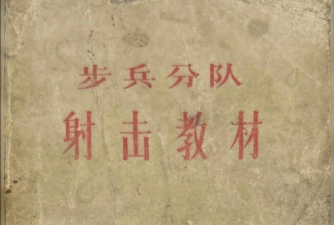 步兵分队
射击教材